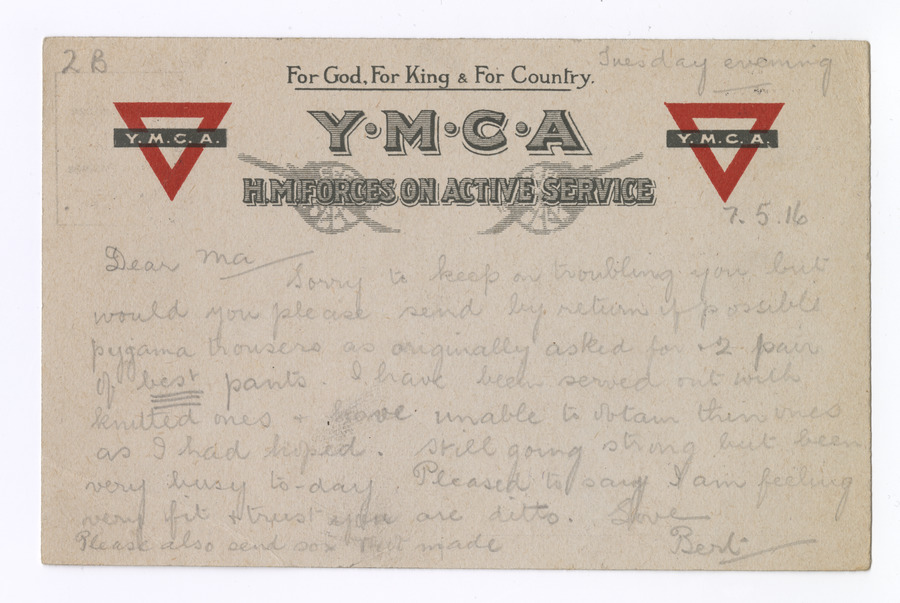 2 B
Tuesday evening
For God, For King & For Country.
Y·M·C·A
Y. M. C. A.
Y. M. C. A.
H.M. FORCES ON ACTIVE SERVICE
7. 5. 16
Dear Ma
Sorry to keep on troubling you but
would you please send by return if possible
pyjama trousers as originally asked for + 2 pair
of best pants. I have been served out with
knitted ones + have unable to obtain thin ones
as I had hoped. Still going strong but been
very busy to-day. Pleased to say I am feeling
very fit & trust you are ditto. Love
Please also send sox made
Bert